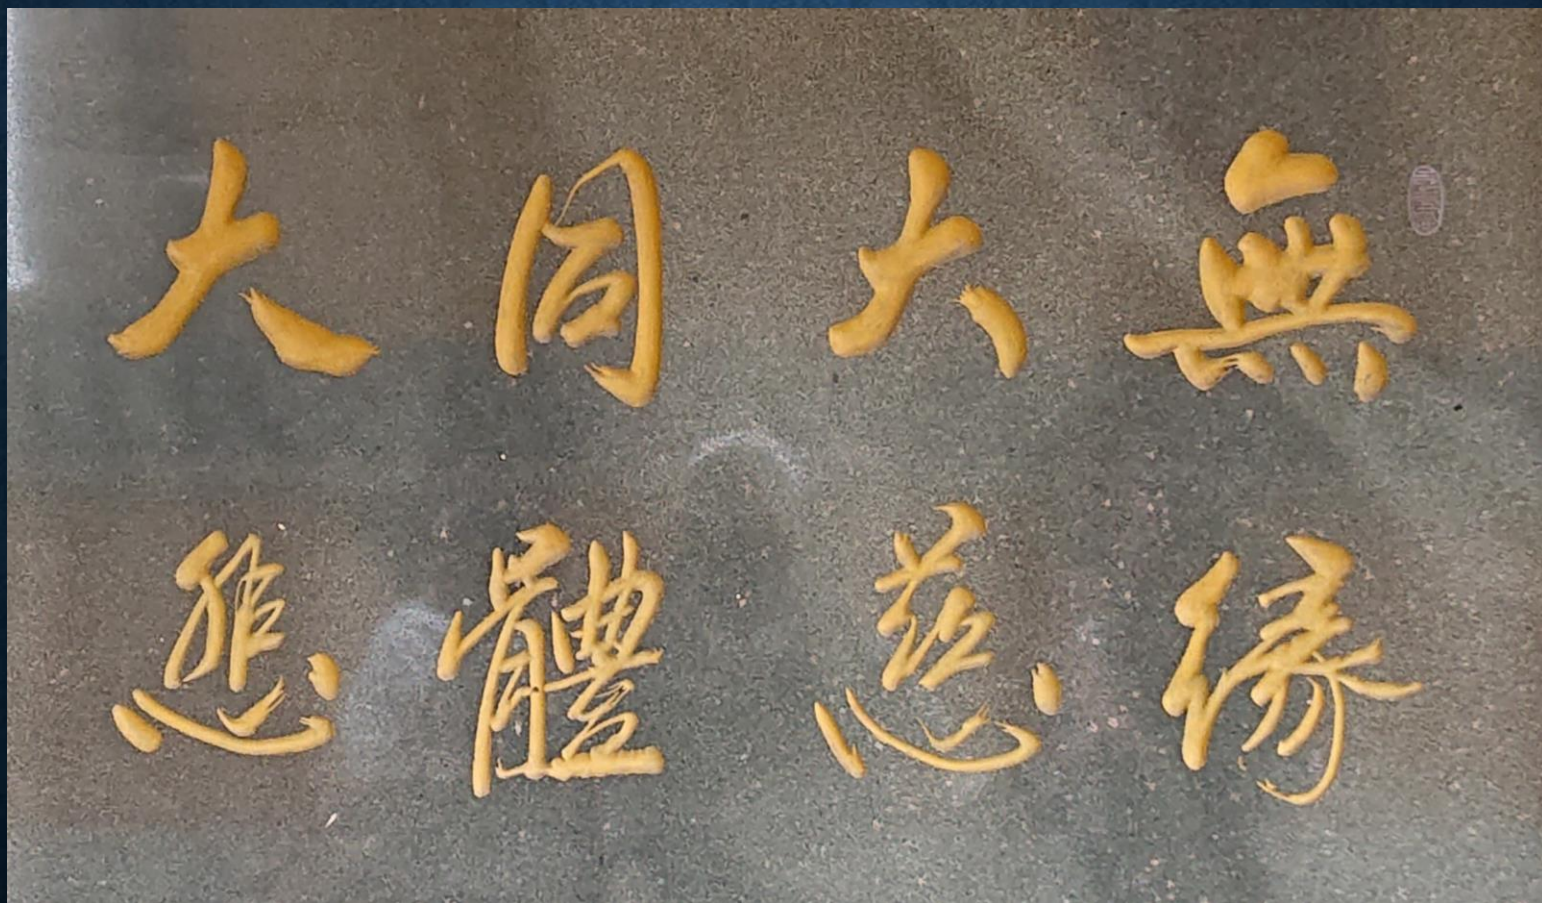 無緣
大慈
同體
大悲